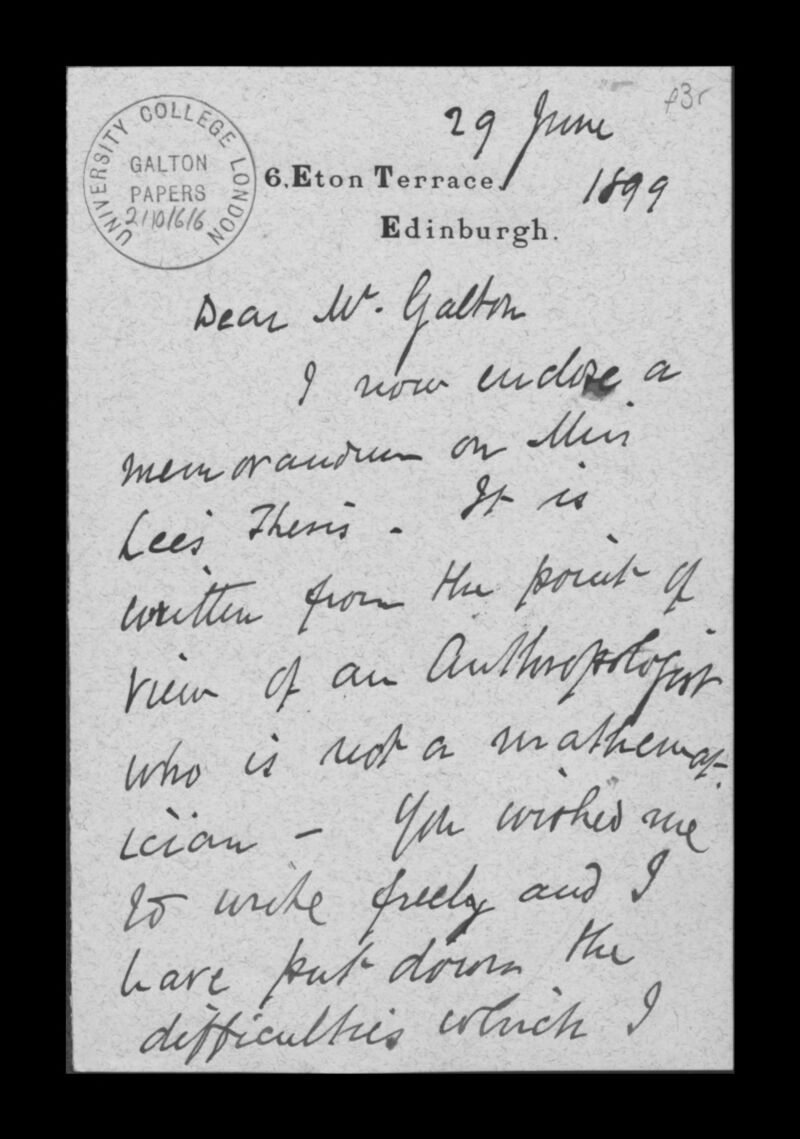 f3r
29 June
1899
UNIVERSITY COLLEGE LONDON
GALTON
PAPERS
2/10/6/6
6, Eton Terrace,
Edinburgh.
Dear Mr. Galton
I now enclose a
memorandum on Miss
Lee's Thesis - It is
written from the point of
view of an Anthropologist
who is not a mathemat-
ician - You wished me
to write freely and I
have put down the
difficulties which I